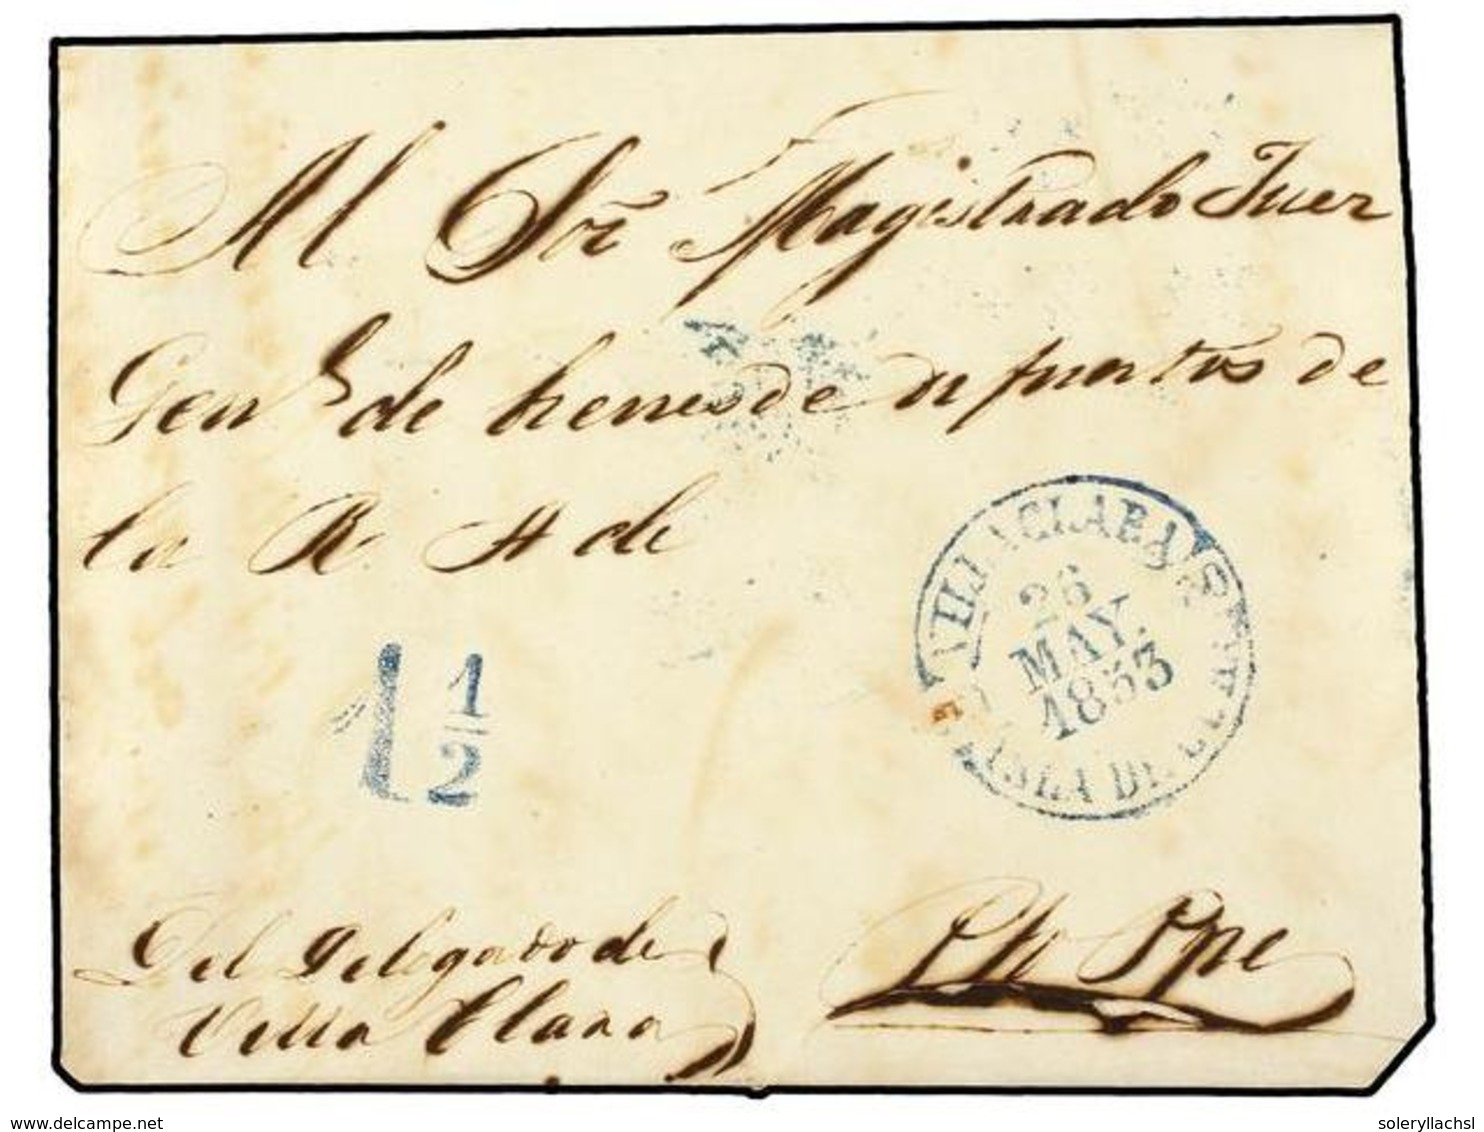 Al Sor. Magistrado Juez
Genl. de bienes de difuntos de
la R. A de
VILLACLARA
26
MAY.
1853
ISLA DE CUBA
1 1/2
Del Delegado de
Villa Clara
Pto Ppe
www.delcampe.net
soleryllachsl